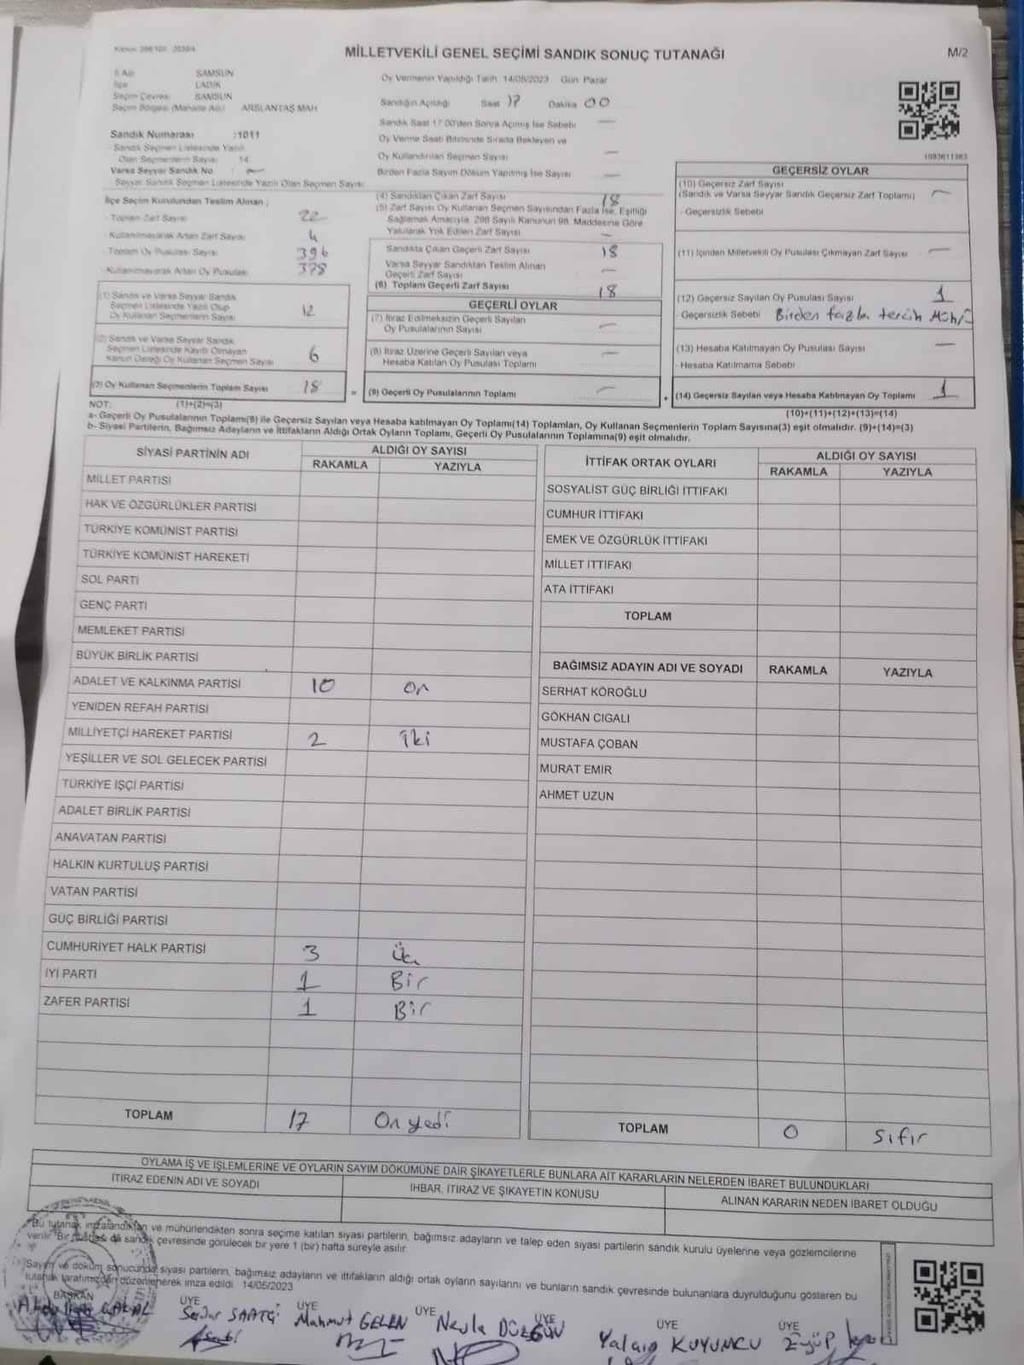 MİLLETVEKİLİ GENEL SEÇİMİ SANDIK SONUÇ TUTANAĞI
M/2
İl Adı SAMSUN
İlçe LADİK
Seçim Çevresi SAMSUN
Seçim Bölgesi (Mahalle Adı) ARSLANTAŞ MAH
Sandık Numarası :1011
Sandık Seçmen Listesinde Yazılı
Olan Seçmenlerin Sayısı 14
Varsa Seyyar Sandık No —
Seyyar Sandık Seçmen Listesinde Yazılı Olan Seçmen Sayısı
Oy Vermenin Yapıldığı Tarih 14/05/2023 Gün Pazar
Sandığın Açıldığı Saat 17 Dakika 00
Sandık Saat 17.00'den Sonra Açılmış İse Sebebi —
Oy Verme Saati Bitiminde Sırada Bekleyen ve
Oy Kullandırılan Seçmen Sayısı —
Birden Fazla Sayım Döküm Yapılmış İse Sayısı —
İlçe Seçim Kurulundan Teslim Alınan ;
- Toplam Zarf Sayısı 22
- Kullanılmayarak Artan Zarf Sayısı 4
- Toplam Oy Pusulası Sayısı 396
- Kullanılmayarak Artan Oy Pusulası 378
(4) Sandıktan Çıkan Zarf Sayısı 18
(5) Zarf Sayısı Oy Kullanan Seçmen Sayısından Fazla İse, Eşitliği
Sağlamak Amacıyla, 298 Sayılı Kanunun 98. Maddesine Göre
Yakılarak Yok Edilen Zarf Sayısı —
Sandıkta Çıkan Geçerli Zarf Sayısı 18
Varsa Seyyar Sandıktan Teslim Alınan
Geçerli Zarf Sayısı —
(6) Toplam Geçerli Zarf Sayısı 18
(1) Sandık ve Varsa Seyyar Sandık
Seçmen Listesinde Yazılı Olup
Oy Kullanan Seçmenlerin Sayısı 12
(2) Sandık ve Varsa Seyyar Sandık
Seçmen Listesinde Kayıtlı Olmayan
Kanun Gereği Oy Kullanan Seçmen Sayısı 6
(3) Oy Kullanan Seçmenlerin Toplam Sayısı 18
GEÇERLİ OYLAR
(7) İtiraz Edilmeksizin Geçerli Sayılan
Oy Pusulalarının Sayısı —
(8) İtiraz Üzerine Geçerli Sayılan veya
Hesaba Katılan Oy Pusulası Toplamı —
= (9) Geçerli Oy Pusulalarının Toplamı —
GEÇERSİZ OYLAR
(10) Geçersiz Zarf Sayısı
(Sandık ve Varsa Seyyar Sandık Geçersiz Zarf Toplamı) —
- Geçersizlik Sebebi
(11) İçinden Milletvekili Oy Pusulası Çıkmayan Zarf Sayısı —
(12) Geçersiz Sayılan Oy Pusulası Sayısı 1
- Geçersizlik Sebebi Birden fazla tercih Mührü
(13) Hesaba Katılmayan Oy Pusulası Sayısı —
- Hesaba Katılmama Sebebi
+ (14) Geçersiz Sayılan veya Hesaba Katılmayan Oy Toplamı 1
NOT: (1)+(2)=(3)
(10)+(11)+(12)+(13)=(14)
a- Geçerli Oy Pusulalarının Toplamı(9) ile Geçersiz Sayılan veya Hesaba katılmayan Oy Toplamı(14) Toplamları, Oy Kullanan Seçmenlerin Toplam Sayısına(3) eşit olmalıdır. (9)+(14)=(3)
b- Siyasi Partilerin, Bağımsız Adayların ve İttifakların Aldığı Ortak Oyların Toplamı, Geçerli Oy Pusulalarının Toplamına(9) eşit olmalıdır.
SİYASİ PARTİNİN ADI
ALDIĞI OY SAYISI
RAKAMLA YAZIYLA
MİLLET PARTİSİ
HAK VE ÖZGÜRLÜKLER PARTİSİ
TÜRKİYE KOMÜNİST PARTİSİ
TÜRKİYE KOMÜNİST HAREKETİ
SOL PARTİ
GENÇ PARTİ
MEMLEKET PARTİSİ
BÜYÜK BİRLİK PARTİSİ
ADALET VE KALKINMA PARTİSİ 10 on
YENİDEN REFAH PARTİSİ
MİLLİYETÇİ HAREKET PARTİSİ 2 iki
YEŞİLLER VE SOL GELECEK PARTİSİ
TÜRKİYE İŞÇİ PARTİSİ
ADALET BİRLİK PARTİSİ
ANAVATAN PARTİSİ
HALKIN KURTULUŞ PARTİSİ
VATAN PARTİSİ
GÜÇ BİRLİĞİ PARTİSİ
CUMHURİYET HALK PARTİSİ 3 Üç
İYİ PARTİ 1 Bir
ZAFER PARTİSİ 1 Bir
TOPLAM 17 On yedi
İTTİFAK ORTAK OYLARI
ALDIĞI OY SAYISI
RAKAMLA YAZIYLA
SOSYALİST GÜÇ BİRLİĞİ İTTİFAKI
CUMHUR İTTİFAKI
EMEK VE ÖZGÜRLÜK İTTİFAKI
MİLLET İTTİFAKI
ATA İTTİFAKI
TOPLAM
BAĞIMSIZ ADAYIN ADI VE SOYADI RAKAMLA YAZIYLA
SERHAT KÖROĞLU
GÖKHAN CIGALI
MUSTAFA ÇOBAN
MURAT EMİR
AHMET UZUN
TOPLAM 0 Sıfır
OYLAMA İŞ VE İŞLEMLERİNE VE OYLARIN SAYIM DÖKÜMÜNE DAİR ŞİKAYETLERLE BUNLARA AİT KARARLARIN NELERDEN İBARET BULUNDUKLARI
İTİRAZ EDENİN ADI VE SOYADI
İHBAR, İTİRAZ VE ŞİKAYETİN KONUSU
ALINAN KARARIN NEDEN İBARET OLDUĞU
Bu tutanak imzalandıktan ve mühürlendikten sonra seçime katılan siyasi partilerin, bağımsız adayların ve talep eden siyasi partilerin sandık kurulu üyelerine veya gözlemcilerine
verilir. Bir sandık çevresinde görülecek bir yere 1 (bir) hafta süreyle asılır.
Sayım ve döküm sonucunda siyasi partilerin, bağımsız adayların ve ittifakların aldığı ortak oyların sayılarını ve bunların sandık çevresinde bulunanlara duyrulduğunu gösteren bu
tutanak tarafımızdan düzenlenerek imza edildi. 14/05/2023
BAŞKAN ÜYE ÜYE ÜYE ÜYE ÜYE ÜYE
Serdar SAATÇİ
Mahmut GELEN
Neyla DÜZGÜN
Yalçın KUYUNCU
Eyüp